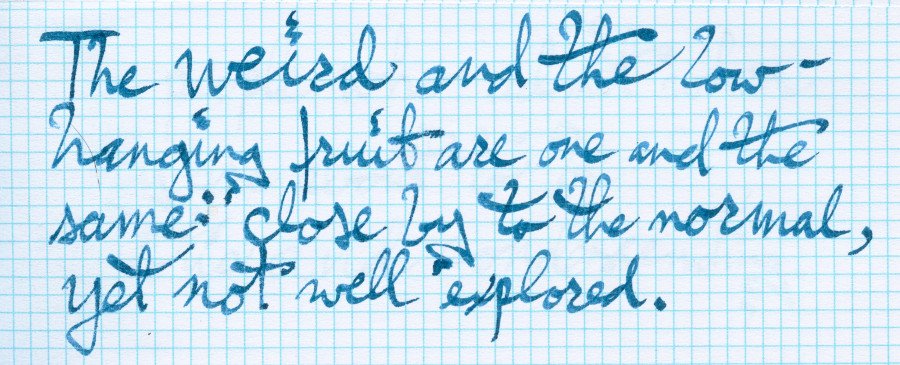 The weird and the low-
hanging fruit are one and the
same: close by to the normal,
yet not well explored.